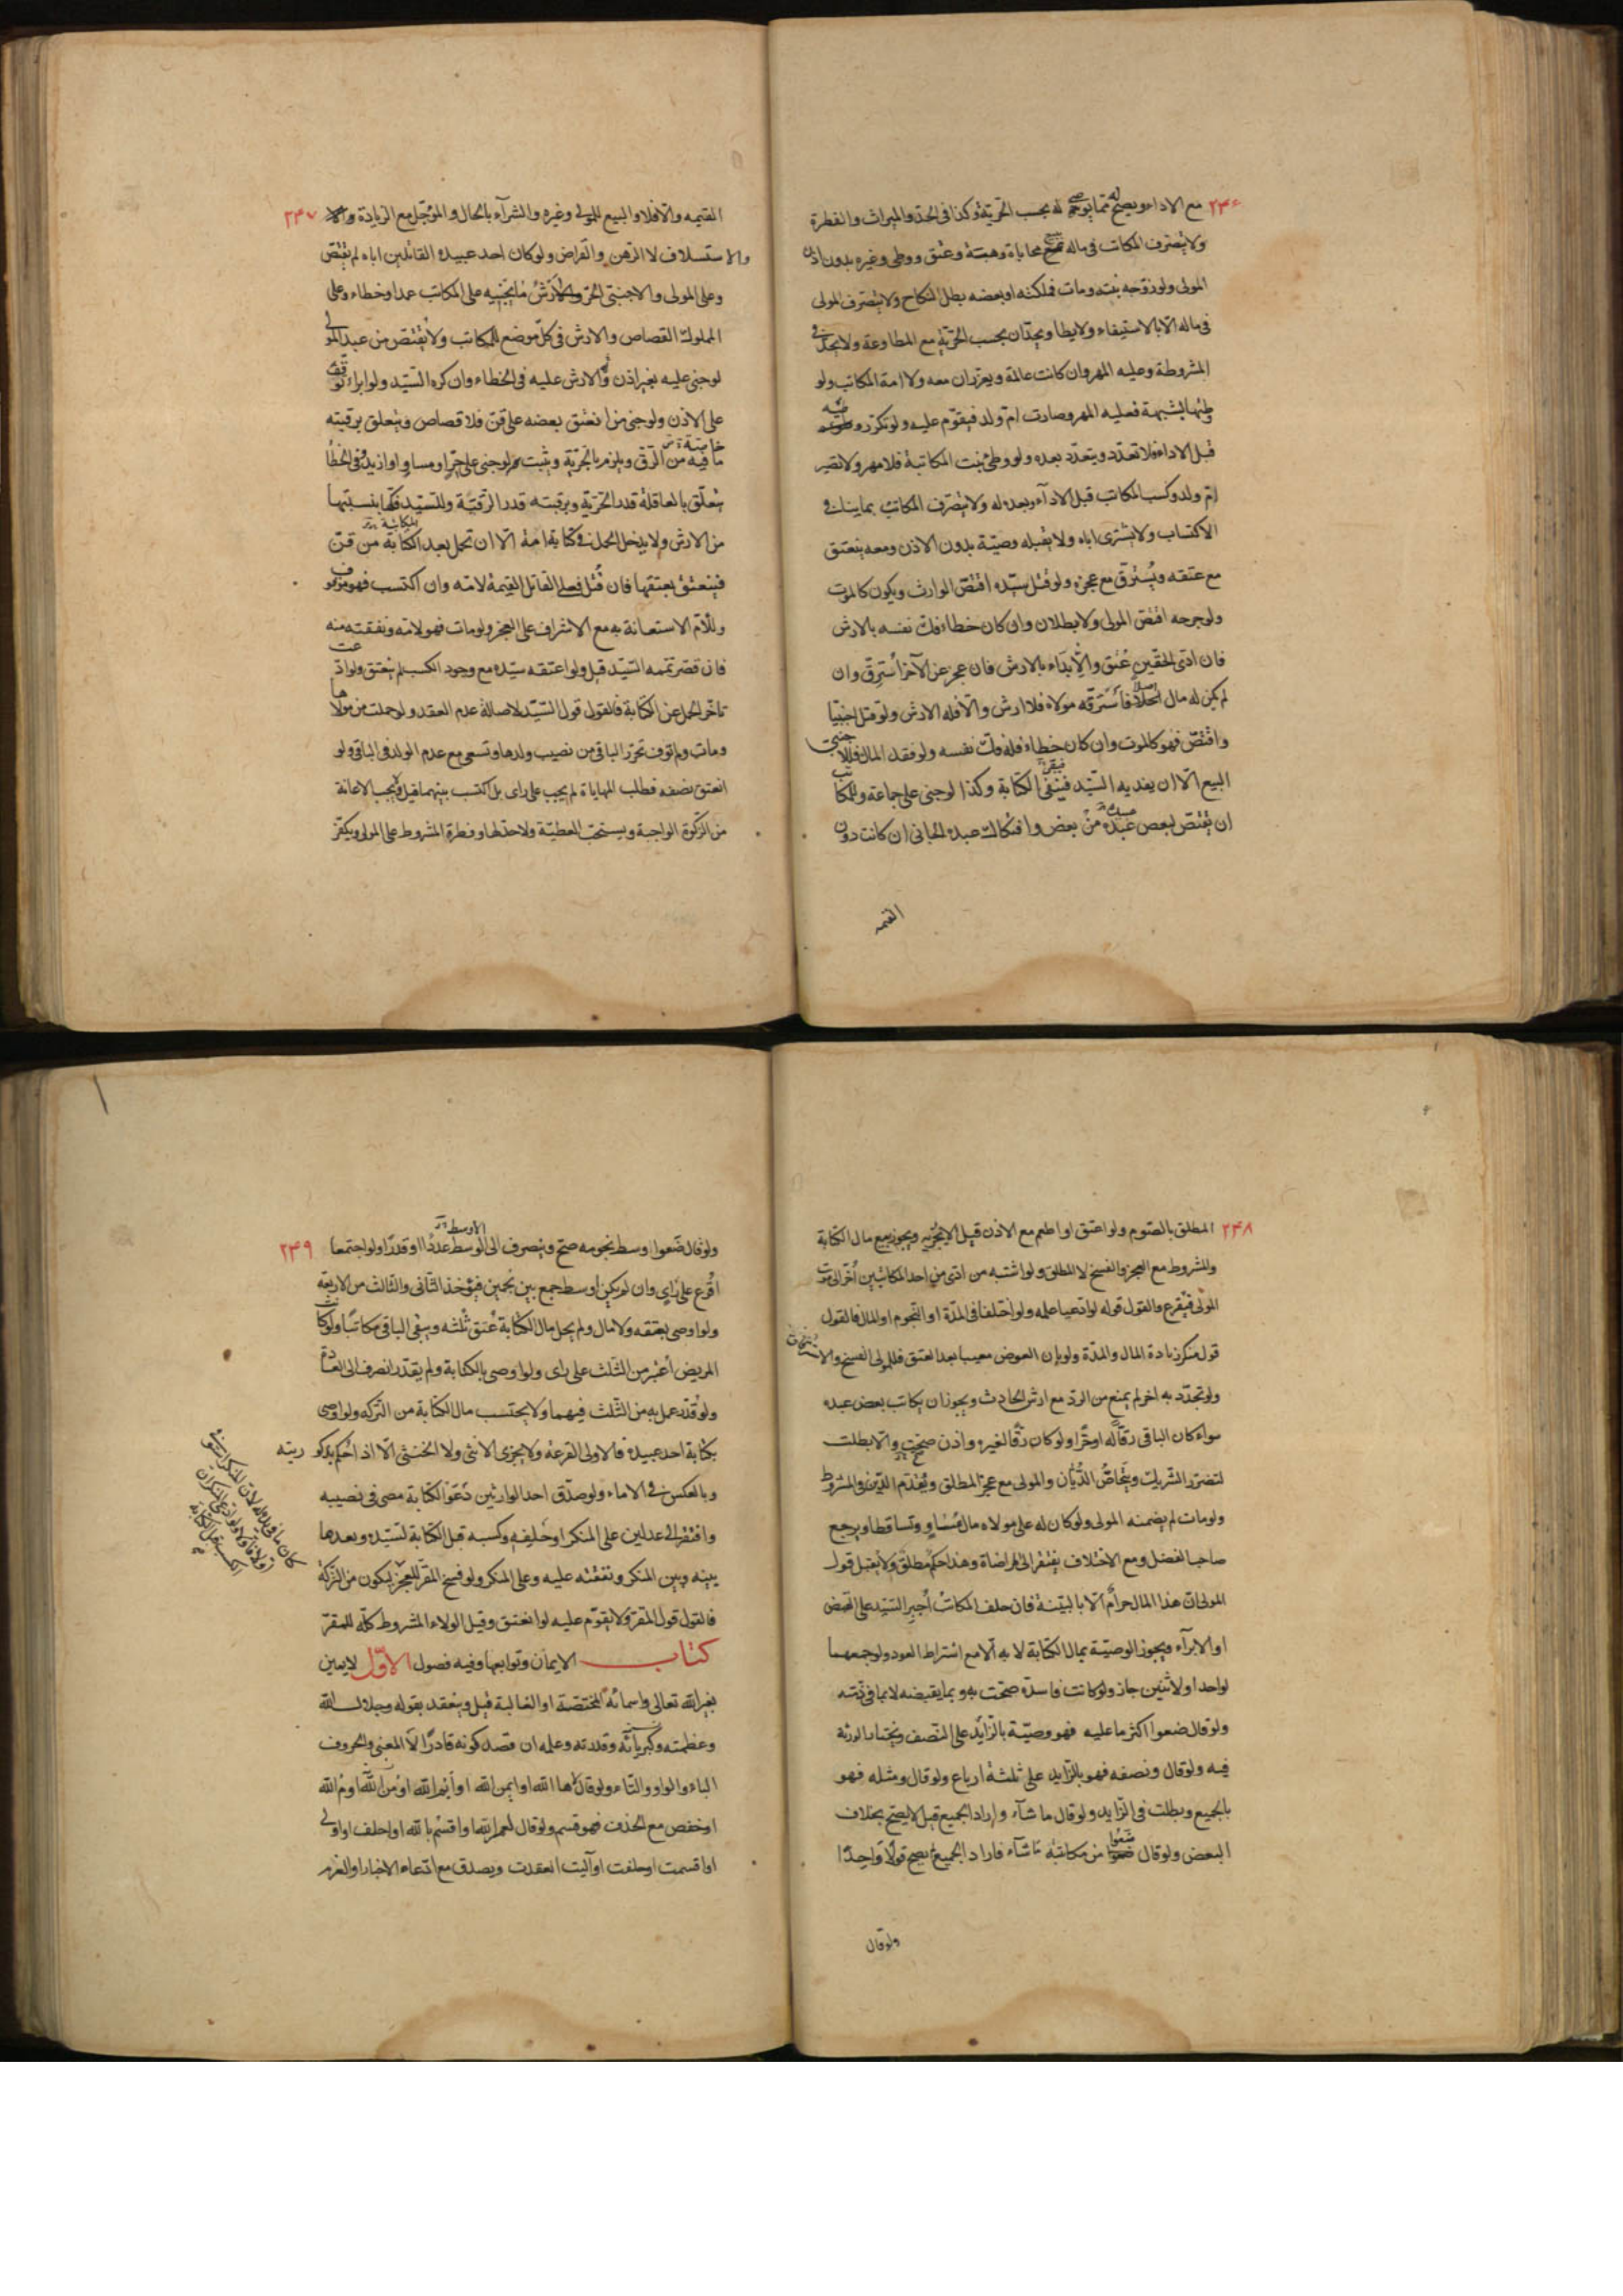 ٢۴۶ مع الاداء ويصح له مما يوصى له بحسب الحرّيّة وكذا فى الحدّ والميراث والفطرة
ولا يتصرف المكاتب فى ماله محاباة وهبة وعتق ووطى وغيره بدون اذن
المولى ولو زوّجه بنته ومات فملكته او بعضه بطل النكاح ولا يتصرف المولى
فى ماله الّا بالاستيفاء ولا يطا ويحدّان بحسب الحرّيّة مع المطاوعة ولا يحدّ فى
المشروطة وعليه المهر وان كانت عالمة ويعزّران معه ولا امة المكاتب ولو
وطئها بشبهة فعليه المهر وصارت امّ ولد فيقوّم عليه ولو تكرّر وطيه
قبل الاداء فلا تعدّد ويتعدّد بعده ولو وطئ بنت المكاتبة فلا مهر ولا تصير
امّ ولد وكسب المكاتب قبل الادآء وبعده له ولا يتصرّف المكاتب بما ينافى
الاكتساب ولا يشترى اباه ولا يقبله وصيّة بدون الاذن ومعه ينعتق
مع عتقه ويُسترقّ مع عجزه ولو قتل سيّده اقتصّ الوارث ويكون كالموت
ولو جرحه اقتصّ المولى ولا بطلان وان كان خطاء فكّ نفسه بالارش
فان ادّى الحقّين عُتق والابتداء بالارش فان عجز عن الآخر استُرِقّ وان
لم يكن له مال اصلا فاسترقّه مولاه فلا ارش والّا فله الارش ولو قتل اجنبيّا
واقتصّ فهو كالموت وان كان خطاء فله فكّ نفسه ولو فقد المال فللاجنبى
البيع الّا ان يفديه السّيد فيبقى الكتابة وكذا لو جنى على جماعة وللمكاتب
ان يقتصّ لبعض عبيده من بعض وافتكاك عبده الجانى ان كانت دون
القيمه
٢۴٧ القيمه والّا فلا والبيع للمولى وغيره والشرآء بالحال والمؤجّل مع الزيادة
والاستسلاف لا الرّهن والقراض ولو كان احد عبيده القاتلين اباه لم يقتصّ
وعلى المولى والاجنبىّ الحرّ الارش ما يجنيه على المكاتب عمدا وخطاء وعلى
المملوك القصاص والارش فى كلّ موضع للمكاتب ولا يقتصّ من عبد المولى
لو جنى عليه بغير اذن والارش عليه فى الخطاء وان كره السّيد ولو ابراء توقّف
على الاذن ولو جنى من انعتق بعضه على قنّ فلا قصاص ويتعلق برقبته
ما فيه من الرّق ويلزم بالحرّية ويثبت لو جنى على حرّ او مساو او ازيد وفى الخطا
يتعلّق بالعاقلة قدر الحرّية وبرقبته قدر الرّقيّة وللسّيد فكّها بنسبتها
من الارش ولا يدخل الحمل فى كتابة امّه الّا ان تحمل بعد الكتابة من قنّ
فينعتق بعتقها فان قُتل فعلى القاتل القيمة لامّه وان اكتسب فهو موقوف
وللامّ الاستعانة به مع الاشراف على العجز ولو مات فهو لامّه ونفقته منه
فان قصر تمّمه السّيد قيل ولو اعتقه سيّده مع وجود الكسب لم ينعتق ولو ادّعت
تاخّر الحمل عن الكتابة فالقول قول السّيّد لاصالة عدم العقد ولو حملت من مولاها
ومات ولم توف تحرّر الباقى من نصيب ولدها وتسعى مع عدم الولد فى الباقى ولو
انعتق نصفه فطلب المهاياة لم يجب على راى بل اكتسب بينهما قيل ويجب الاعانة
من الزّكوة الواجبة ويستحبّ العطيّة ولا حدّ لها وفطرة المشروط على المولى ويكفّر
٢۴٨ المطلق بالصّوم ولو اعتق او اطعم مع الاذن قيل لا يجزيه ويجوز بيع مال الكتابة
والمشروط مع العجز والفسخ لا المطلق ولو اشتبه من ادّى من احد المكاتبين اُخّر الى موت
المولى فيُقرع والقول قوله لو ادّعيا علمه ولو اختلفا فى المدّة او النّجوم او المال فالقول
قول منكر زيادة المال والمدّة ولو بان العوض معيبا بعد العتق فللمولى الفسخ والارش
ولو تجدّد به اخر لم يمنع من الردّ مع ارش الحادث ويجوز ان يكاتب بعض عبده
سواء كان الباقى رقّا له او حرّا ولو كان رقّا لغيره واذن صحّت والّا بطلت
لتضرّر الشّريك ويتحاصّ الدّيّان والمولى مع عجز المطلق ويُقدّم الدّين فى المشروط
ولو مات لم يضمنه المولى ولو كان له على مولاه مال مساوٍ وتساقطا ويرجع
صاحب الفضل ومع الاختلاف يفتقر الى المراضاة وهذا حكم مطلق ولا يقبل قول
المولى انّ هذا المال حرام الّا بالبيّنة فان حلف المكاتب اُجبر السّيّد على القبض
او الابرآء ويجوز الوصيّة بمال الكتابة لا به الّا مع اشتراط العود ولو جمعهما
لواحد او لاثنين جاز ولو كانت فاسدة صحّت به وبما يقبضه لا بما فى ذمّته
ولو قال ضعوا اكثر ما عليه فهو وصيّة بالزّايد على النّصف ويختار الورثة
فيه ولو قال ونصفه فهو بالزّايد على ثلثة ارباع ولو قال ومثله فهو
بالجميع وبطلت فى الزّايد ولو قال ما شآء واراد الجميع قيل لا يصحّ بخلاف
البعض ولو قال ضعوا من مكاتبته ما شآء فاراد الجميع لم يصح قولًا واحِدًا
ولو قال
٢۴٩ ولو قال ضعوا اوسط نجومه صحّ وينصرف الى الاوسط عددًا او قدرًا ولو اجتمعا
اُقرع على راى وان لم يكن اوسط جمع بين نجمين فيؤخذ الثّانى والثّالث من الاربعة
ولو اوصى بعتقه ولا مال ولم يحلّ مال الكتابة عُتق ثلثه وبقى الباقى مكاتبًا ولو كاتب
المريض اُعتبر من الثّلث على راى ولو اوصى بالكتابة ولم يقدّر انصرف الى العادة
ولو قُدّر عمل به من الثّلث فيهما ولا يحتسب مال الكتابة من التّركه ولو اوصى
بكتابة احد عبيده فالاولى القرعة ولا يجزى الانثى ولا الخنثى الّا اذا حُكم بذكوريته
وبالعكس فى الاماء ولو صدّق احد الوارثين دعوى الكتابة مضى فى نصيبه
وافتقر الى عدلين على المنكر او حلفه وكسبه قبل الكتابة لسيّده وبعدها
بينه وبين المنكر ونفقته عليه وعلى المنكر ولو فسخ المقرّ للعجز ليكون من التركة
فالقول قول المقرّ ولا يقوّم عليه لو انعتق وقيل الولاء المشروط كلّه للمقرّ
كتاب الايمان وتوابعها وفيه فصول الاوّل لا يمين
بغير الله تعالى واسمائه المختصّة او الغالبة قيل وينعقد بقوله وجلال الله
وعظمته وكبريائه وقدرته وعلمه ان قصد كونه قادرًا لا المعنى والحروف
الباء والواو والتاء ولو قال ها الله او ايمن الله او ايم الله او من الله او مُ الله
او خفض مع الحذف فهو قسم ولو قال لعمر الله واقسم بالله او احلف او اولى
او اقسمت او حلفت او آليت انعقدت ويصدق مع ادّعاء الاخبار او العزم